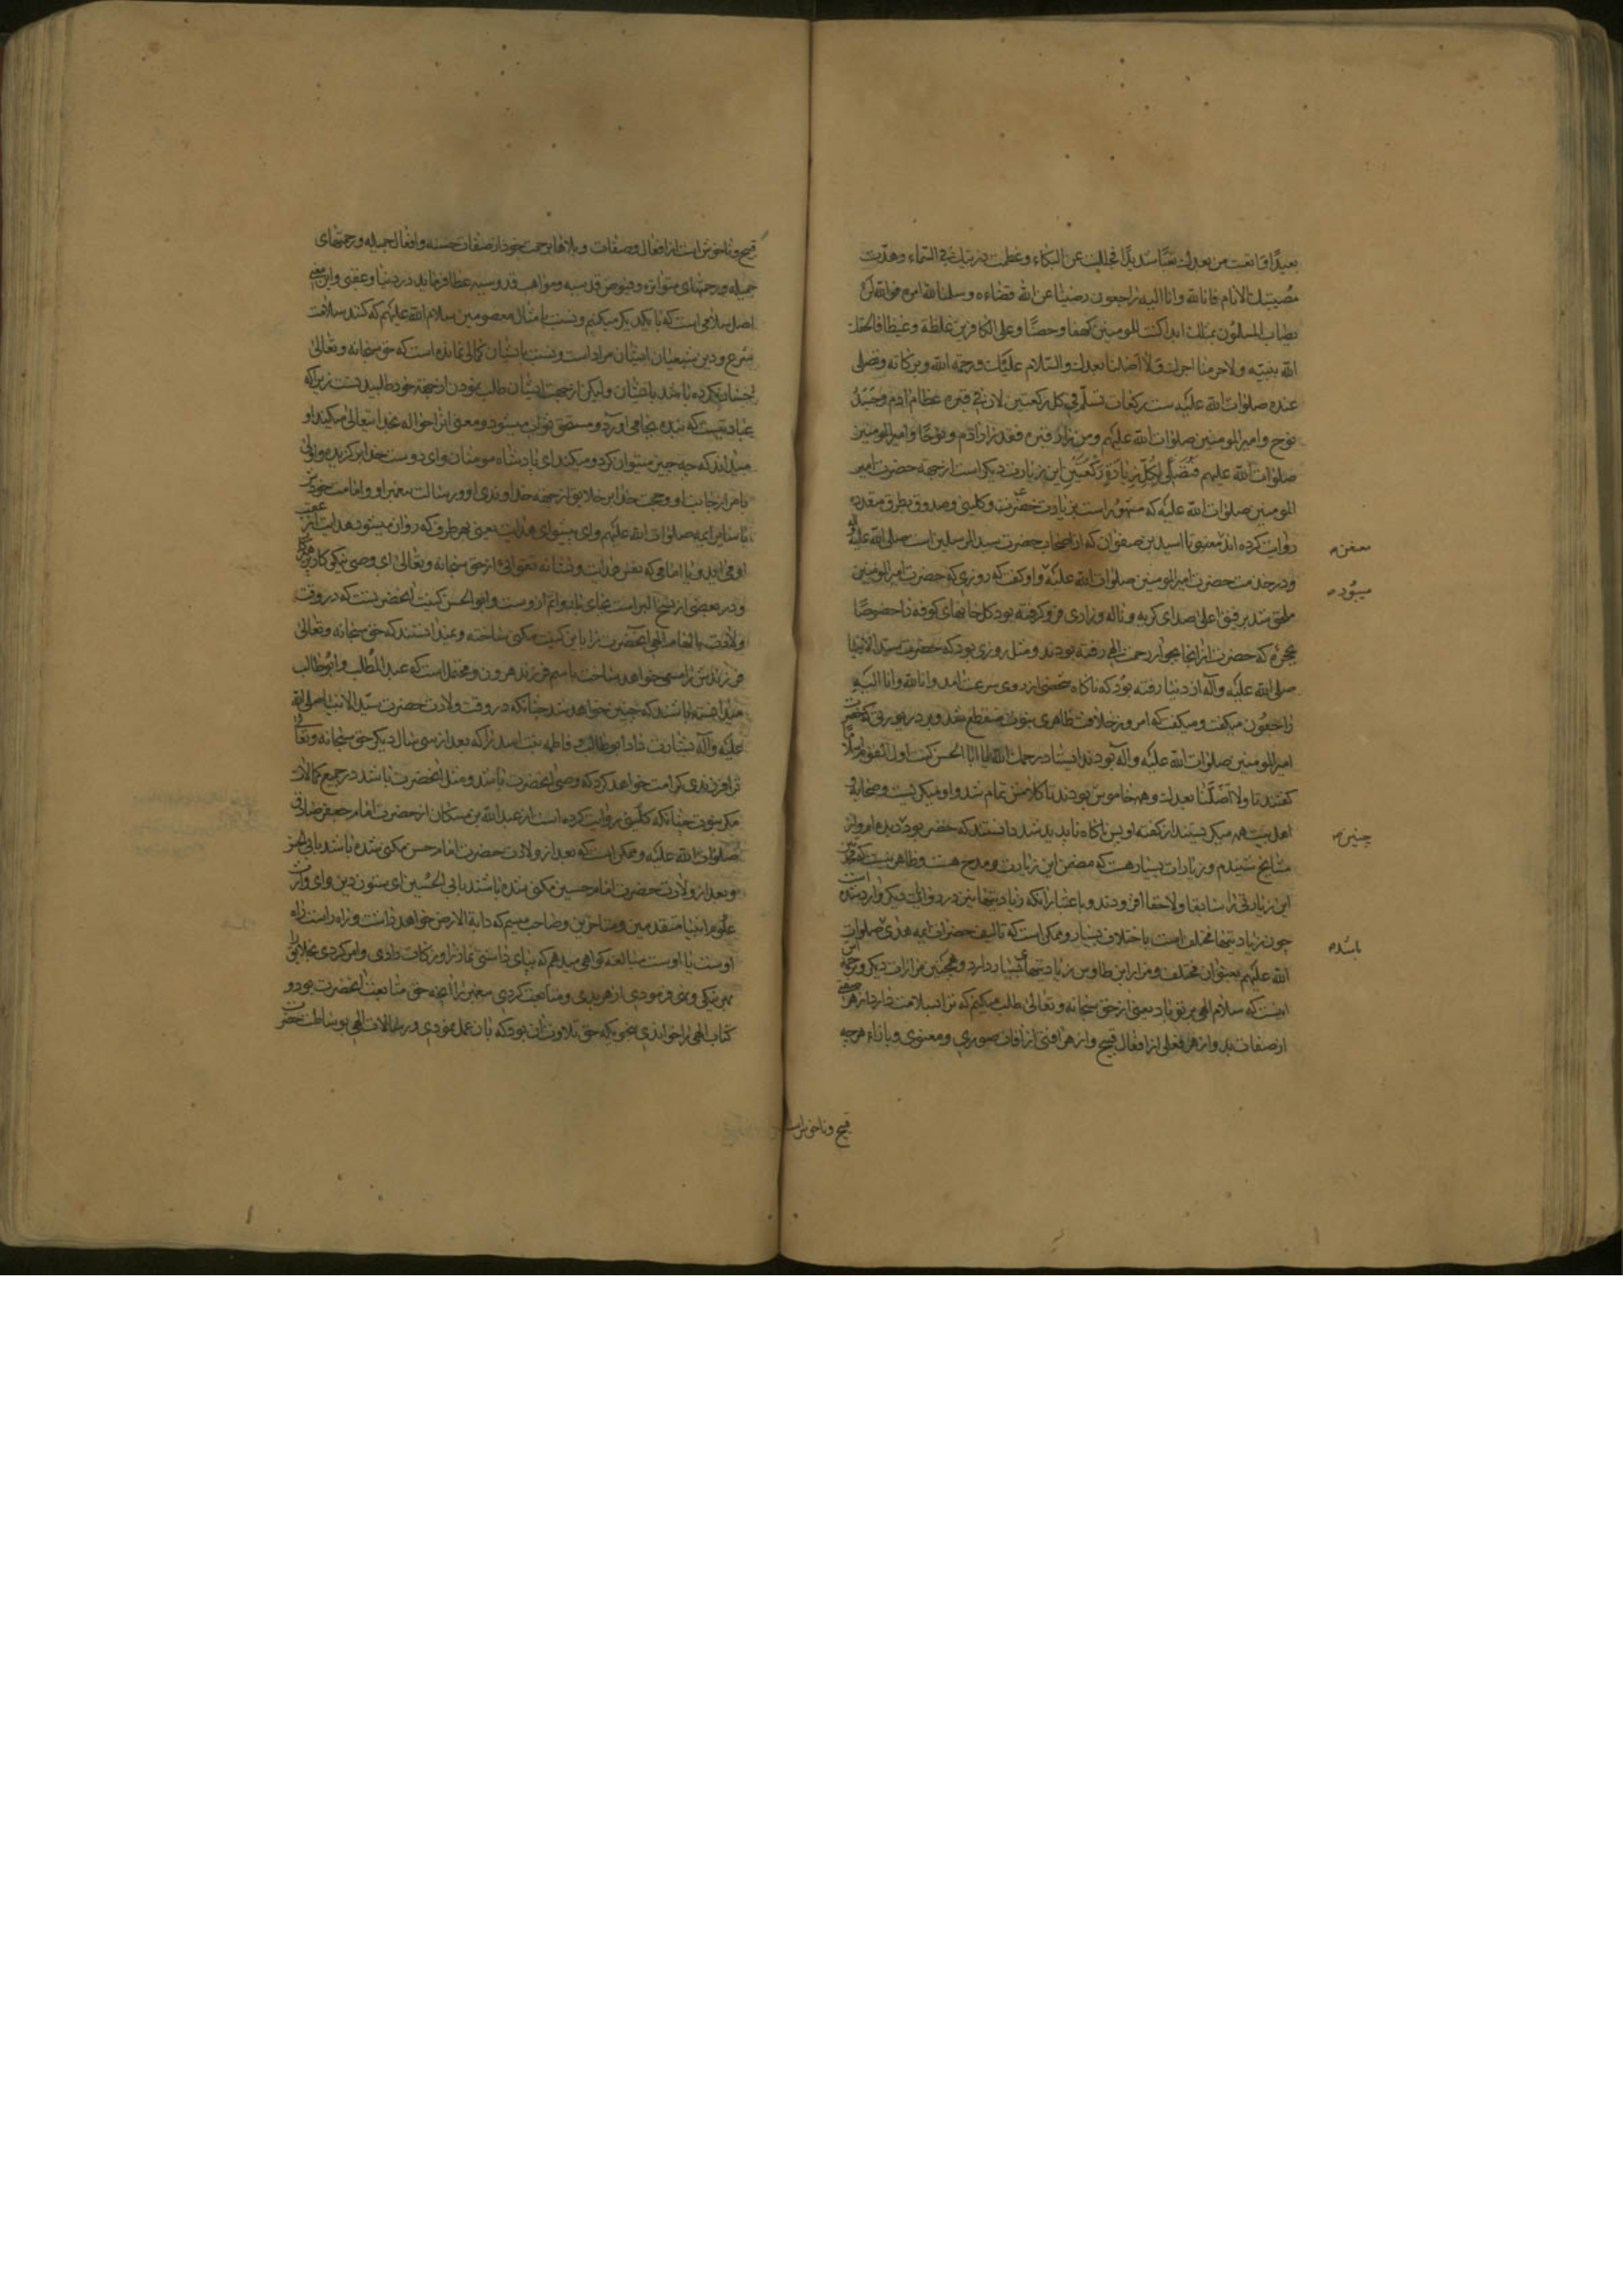 بعیدا و اتعبت من بعدك تعبا شدیدا فجللت عن البكاء و عظمت رزیتك فی السماء و هدت
مصیبتك الانام فانا لله و انا الیه راجعون رضینا عن الله قضاءه و سلمنا لله امره فوالله لن
یصاب المسلمون بمثلك ابدا كنت للمومنین كهفا و حصنا و علی الكافرین غلظة و غیظا فالحقك
الله بنبیه و لا حرمنا اجرك و لا اضلنا بعدك و السلام علیك و رحمة الله و بركاته و تصلی
عنده صلوات الله علیه ست ركعات تسلم فی كل ركعتین لان فی قبره عظام ادم و جسد
نوح و امیر المومنین صلوات الله علیهم و من زار قبره فقد زار ادم و نوحا و امیر المومنین
صلوات الله علیهم فتصلی لكل زیارة ركعتین این زیارت دیكر است از جهة حضرت امیر
المومنین صلوات الله علیه كه مشهور است بزیارت خضر و كلینی و صدوق بطرق متعدده
روایت كرده اند تا اسید بن صفوان كه از اصحاب حضرت سید المرسلین است صلی الله علیه و آله
معنعن
و در خدمت حضرت امیر المومنین صلوات الله علیه و او كفت كه روزی كه حضرت امیر المومنین
میبوده
ملحق شد برفیق اعلی صدای كریه و ناله و زاری فرو كرفته بود كل خانهای كوفه را خصوصا
حجره كه حضرت از انجا بجوار رحمت الهی رفته بودند و مثل روزی بود كه حضرت سید الانبیا
صلی الله علیه و آله از دنیا رفته بود كه ناكاه شخصی از دوی سرعت امد و انا لله و انا الیه
راجعون میكفت و میكفت كه امروز خلافت ظاهری نبوت منقطع شد و بر در
امیر المومنین صلوات الله علیه و آله بودند ایستاد رحمك الله یا ابا الحسن كنت اول القوم اسلاما
كفتند تا و لا اضلنا بعدك و همه خاموش بودند تا كلامش تمام شد و او میكریست و صحابه
اهل بیت همه میكریستند از كفته او پس ناكاه ناپدید شد دانستند كه خضر بود دیده ام و از
چنین
مشایخ شنیدم و زیارات بسیار هست كه مضمن این زیارت و مدح هست و ظاهر نیست
این زیارتی را سابقا و لاحقا افزودند و باعتبار انكه زیادیتها نیز در روایات دیكر وارد شده است
چون زیادیتها مختلف است باختلاف بسیار و ممكن است كه تالیف حضرات ایمه هدی صلوات
باشد
الله علیهم بعنوان مختلف و مزار ابن طاوس زیادیتهای بسیار دارد و همچنین مزارات دیكر و ترجمه اش
اینست كه سلام الهی بر تو باد یعنی از حق سبحانه و تعالی طلب میكنم كه ترا سلامت دارد از هر صفتی
از صفات بد و از هر فعلی از افعال قبیح و از هر افتی از افات صوری و معنوی و بازاء هر چه
قبیح و ناخوش است
قبیح و ناخوش است از افعال و صفات و بلاها برحمت خود از صفات حسنه و افعال جمیله و رحمتهای
جمیله و رحمتهای متواتره و فیوض قدسیه و مواهب قدوسیه عطا فرماید در دنیا و عقبی و این معنی
اصل سلامی است كه با یكدیكر میكنیم و نسبت بامثال معصومین سلام الله علیهم كه كنند سلامت
شرع و دین شیعیان ایشان مراد است و نسبت بایشان كمالی نمانده است كه حق سبحانه و تعالی
بایشان نكرده باشد و لیكن از جهت ایشان طلب نمودن از جهة خود طلبیدنست زیرا كه
عبادتیست كه بنده بجا می آورد و مستحق ثواب میشود و معنی انرا حواله بخدا تعالی میكند او
میداند كه چه چیز میتوان كرد و میكند ای پادشاه مومنان و ای دوست خدا بركزیده
بامر از جانب او و حجت خدا بر خلایق از جهة خداوندی او و رسالت پیغمبر او و امامت خود
تا سایر ایمه صلوات الله علیهم و ای پیشوای هدایت یعنی بهر طرف كه روان میشود هدایت از عقب
او می اید و یا امامی كه نفس هدایت و نشانه تقوائی از حق سبحانه و تعالی ای وصی نیكوكار
و در بعضی از نسخ البر است بجای و ابو الحسن كنیت انحضرتست كه در وقت
ولادت بالهام الهی انحضرت را باین كنیت مكنی ساخته و میدانستند كه حق سبحانه و تعالی
فرزندش را مسمی خواهد ساخت باسم فرزند هرون و محتمل است كه عبد المطلب و ابو طالب
میدانسته باشند كه چنین خواهد شد چنانكه در وقت ولادت حضرت سید الانبیا صلی الله
علیه و آله بشارت داد ابو طالب فاطمه بنت اسد را كه بعد از سی سال دیكر حق سبحانه و تعالی
ترا فرزندی كرامت خواهد كرد كه وصی انحضرت باشد و مثل انحضرت باشد در جمیع كمالات
مكر نبوت چنانكه كلینی روایت كرده است از عبد الله بن مسكان از حضرت امام جعفر صادق
صلوات الله علیه و ممكن است كه بعد از ولادت حضرت امام حسن مكنی شده باشد بابی الحسن
و بعد از ولادت حضرت امام حسین مكنی شده باشند بابی الحسین ای ستون دین و ای وارث
علوم انبیا متقدمین و متاخرین و صاحب میسم كه دابة الارض خواهد داشت و راه راست راه
اوست یا اوست مبالغه كواهی میدهم كه بپای داشتی نماز را و زكات دادی و امر كردی بخلایق
بهر نیكی و نهی فرمودی از هر بدی و متابعت كردی پیغمبر را انچه حق متابعت انحضرت بود و
كتاب الهی را خواندی بنحوی كه حق تلاوت ان بود كه بان عمل نمودی و رسالات الهی بوساطت حضرت